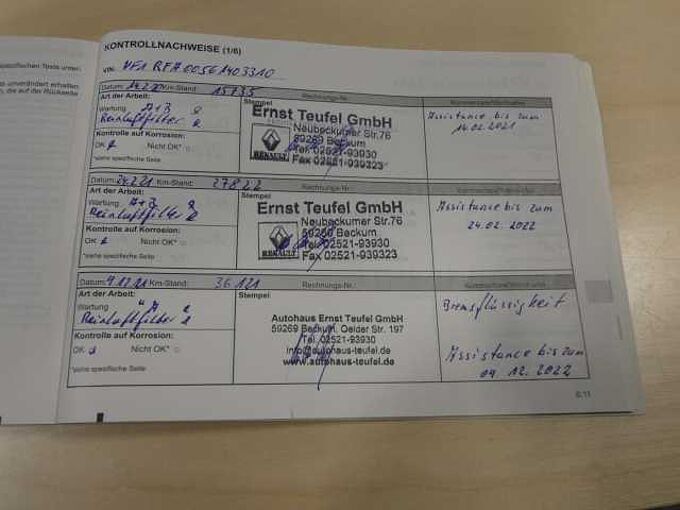 spezifischen Texte unter
s unverändert erhalten
n, die auf der Rückseite
KONTROLLNACHWEISE (1/6)
VIN: VF1 RFA00561403310
Datum: 14.2.20 Km-Stand: 15735 Rechnungs-Nr.: Kommentare/Merkhalter
Art der Arbeit:
Wartung A+B
Reinluftfilter
Kontrolle auf Korrosion:
OK Nicht OK*
*siehe spezifische Seite
Stempel
Ernst Teufel GmbH
Neubeckumer Str.76
59269 Beckum
Tel. 02521-93930
Fax 02521-939323
RENAULT
Assistance bis zum
14.02.2021
Datum: 24.2.21 Km-Stand: 27822 Rechnungs-Nr.:
Art der Arbeit:
Wartung A+B
Reinluftfilter
Kontrolle auf Korrosion:
OK Nicht OK*
*siehe spezifische Seite
Stempel
Ernst Teufel GmbH
Neubeckumer Str.76
59269 Beckum
Tel. 02521-93930
Fax 02521-939323
RENAULT
Assistance bis zum
24.02.2022
Datum: 9.12.21 Km-Stand: 36121 Rechnungs-Nr.:
Art der Arbeit:
Wartung
Reinluftfilter
Kontrolle auf Korrosion:
OK Nicht OK*
*siehe spezifische Seite
Stempel
Autohaus Ernst Teufel GmbH
59269 Beckum, Oelder Str. 197
Tel. 02521-93930
info@autohaus-teufel.de
www.autohaus-teufel.de
Bremsflüssigkeit
Assistance bis zum
09.12.2022
6.11